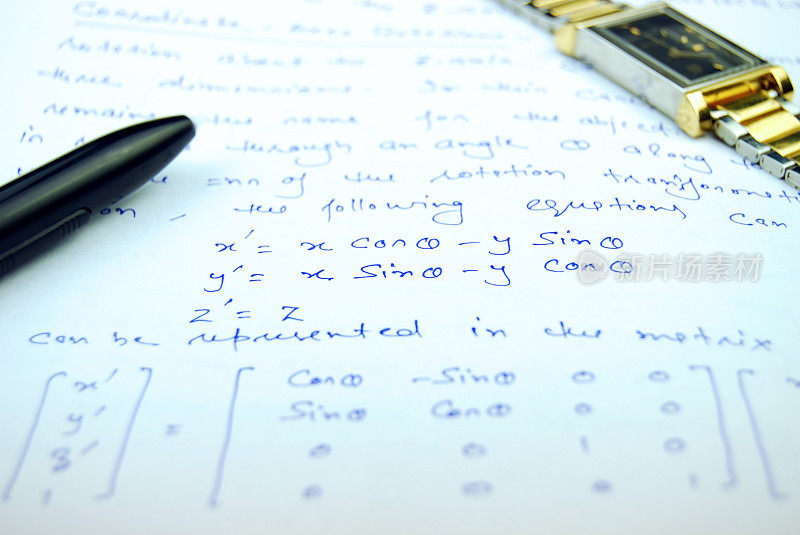 rotation about the
three dimensions. In this
remains the same for the object
in through an angle θ along
of the rotation transformation
the following equations can
x' = x Cosθ - y Sinθ
y' = x Sinθ - y Cosθ
z' = z
新片场素材
can be represented in the matrix
x' Cosθ -Sinθ 0 0
y' = Sinθ Cosθ 0 0
z' 0 0 1 0
1 0 0 0 1